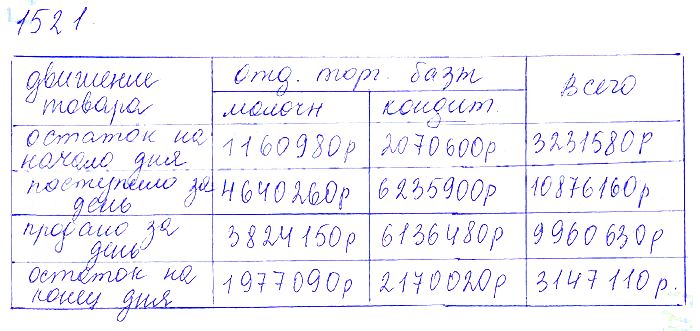 1521.
движение товара
отд. торг. базы
всего
молочн
кондит.
остаток на начало дня
1160980р
2070600р
3231580р
поступило за день
4640260р
6235900р
10876160р
продано за день
3824150р
6136480р
9960630р
остаток на конец дня
1977090р
2170020р
3147110р.